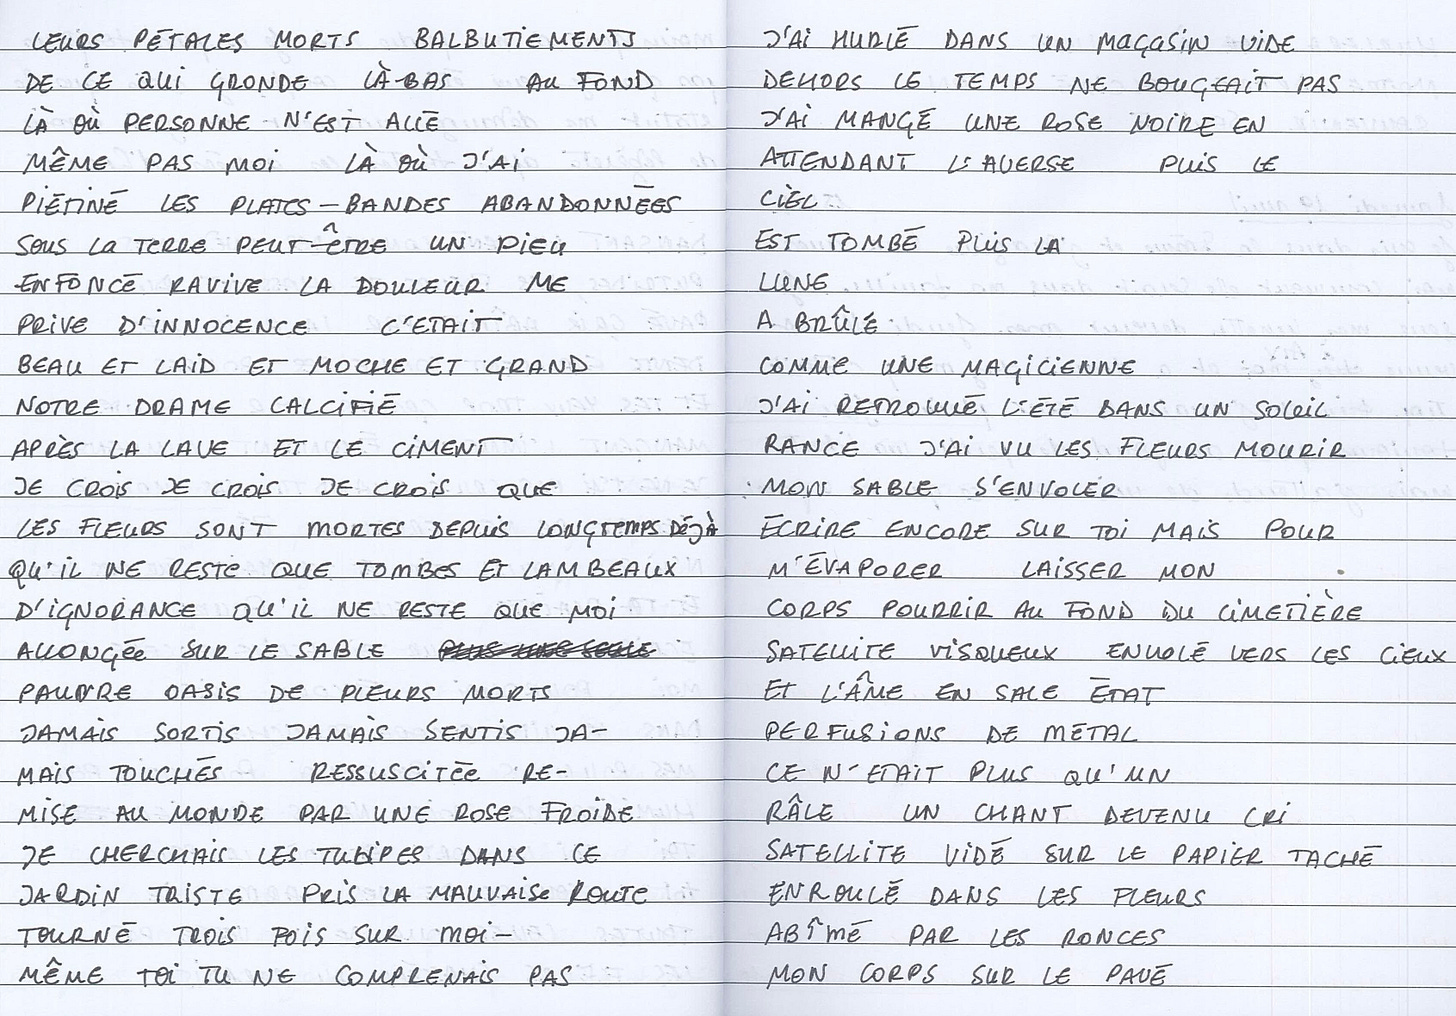 LEURS PÉTALES MORTS BALBUTIEMENTS
DE CE QUI GRONDE LÀ-BAS AU FOND
LÀ OÙ PERSONNE N'EST ALLÉ
MÊME PAS MOI LÀ OÙ J'AI
PIÉTINÉ LES PLATES-BANDES ABANDONNÉES
SOUS LA TERRE PEUT-ÊTRE UN PIEU
ENFONCÉ RAVIVE LA DOULEUR ME
PRIVE D'INNOCENCE C'ETAIT
BEAU ET LAID ET MOCHE ET GRAND
NOTRE DRAME CALCIFIÉ
APRÈS LA LAVE ET LE CIMENT
JE CROIS JE CROIS JE CROIS QUE
LES FLEURS SONT MORTES DEPUIS LONGTEMPS DÉJÀ
QU'IL NE RESTE QUE TOMBES ET LAMBEAUX
D'IGNORANCE QU'IL NE RESTE QUE MOI
ALLONGÉE SUR LE SABLE
PAUVRE OASIS DE PLEURS MORTS
JAMAIS SORTIS JAMAIS SENTIS JA-
MAIS TOUCHÉS RESSUSCITÉE RE-
MISE AU MONDE PAR UNE ROSE FROIDE
JE CHERCHAIS LES TULIPES DANS CE
JARDIN TRISTE PRIS LA MAUVAISE ROUTE
TOURNÉ TROIS FOIS SUR MOI-
MÊME TOI TU NE COMPRENAIS PAS
J'AI HURLÉ DANS UN MAGASIN VIDE
DEHORS LE TEMPS NE BOUGEAIT PAS
J'AI MANGÉ UNE ROSE NOIRE EN
ATTENDANT L'AVERSE PUIS LE
CIEL
EST TOMBÉ PUIS LA
LUNE
A BRÛLÉ
COMME UNE MAGICIENNE
J'AI RETROUVÉ L'ÉTÉ DANS UN SOLEIL
RANCE J'AI VU LES FLEURS MOURIR
MON SABLE S'ENVOLER
ÉCRIRE ENCORE SUR TOI MAIS POUR
M'ÉVAPORER LAISSER MON
CORPS POURRIR AU FOND DU CIMETIÈRE
SATELLITE VISQUEUX ENVOLÉ VERS LES CIEUX
ET L'ÂME EN SALE ÉTAT
PERFUSIONS DE MÉTAL
CE N'ETAIT PLUS QU'UN
RÂLE UN CHANT DEVENU CRI
SATELLITE VIDÉ SUR LE PAPIER TACHÉ
ENROULÉ DANS LES FLEURS
ABÎMÉ PAR LES RONCES
MON CORPS SUR LE PAVÉ